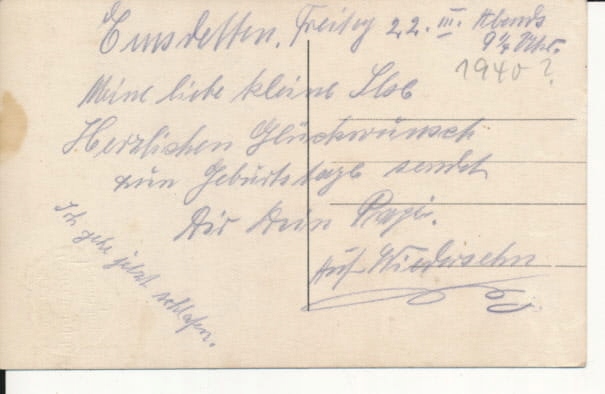 Emsdetten, Freitag 22. III. Abends
9¼ Uhr.
1940?
Meine liebe kleine Ilse
Herzlichen Glückwunsch
zum Geburtstage sendet
Dir Dein Papi.
Auf Wiedersehn
Ich gehe jetzt schlafen.